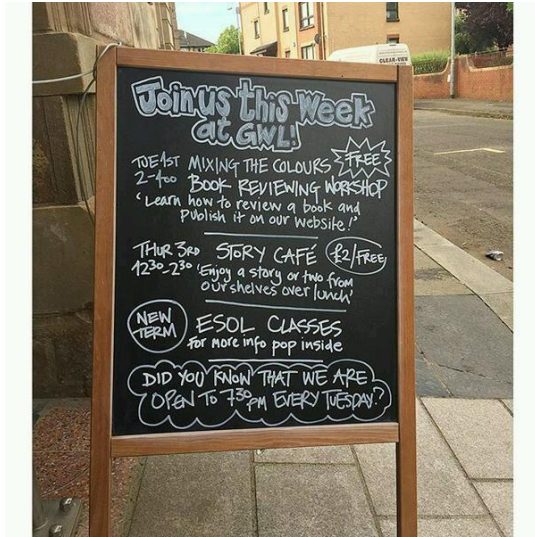 CLEAR-VIEW
Join us this Week
at GWL!
TUE 1ST MIXING THE COLOURS FREE
2-400 BOOK REVIEWING WORKSHOP
'Learn how to review a book and
publish it on our website!'
THUR 3RD STORY CAFÉ £2/FREE
1230-230 'Enjoy a story or two from
our shelves over lunch'
NEW
TERM
ESOL CLASSES
For more info pop inside
DID YOU KNOW THAT WE ARE
OPEN TO 730PM EVERY TUESDAY?